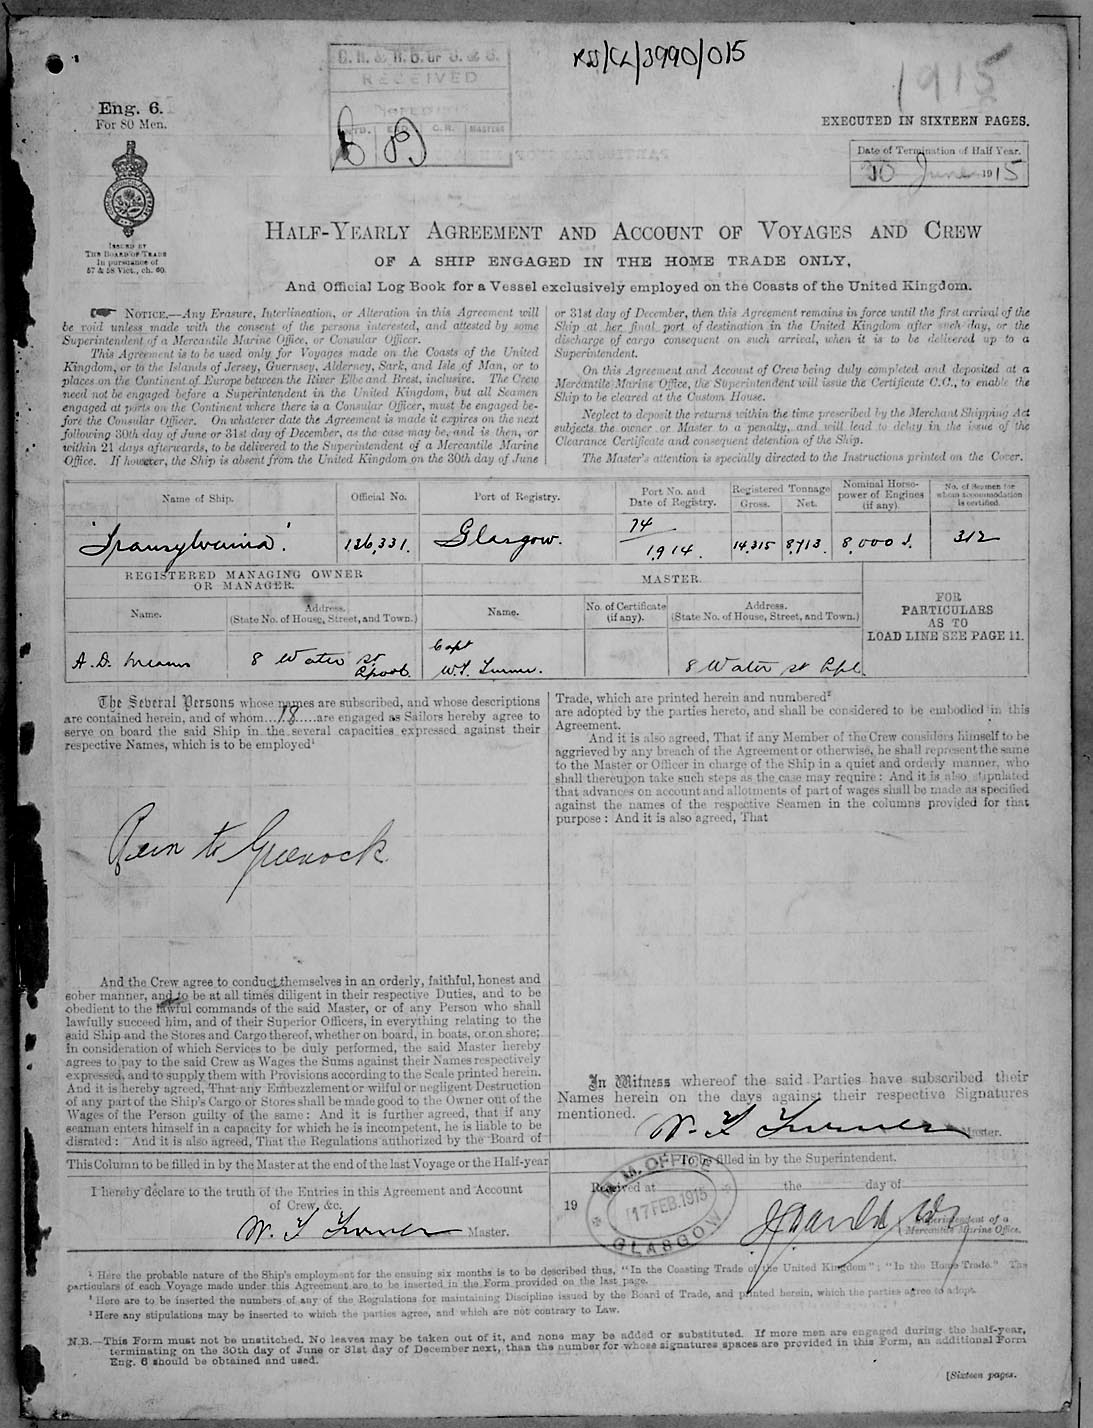 RSS/CL/3990/015
1915
RECEIVED
Eng. 6.
For 80 Men.
EXECUTED IN SIXTEEN PAGES.
Date of Termination of Half Year.
30 June 1915
ISSUED BY
THE BOARD OF TRADE
In pursuance of
57 & 58 Vict., ch. 60.
HALF-YEARLY AGREEMENT AND ACCOUNT OF VOYAGES AND CREW
OF A SHIP ENGAGED IN THE HOME TRADE ONLY,
And Official Log Book for a Vessel exclusively employed on the Coasts of the United Kingdom.
NOTICE.—Any Erasure, Interlineation, or Alteration in this Agreement will
be void unless made with the consent of the persons interested, and attested by some
Superintendent of a Mercantile Marine Office, or Consular Officer.
This Agreement is to be used only for Voyages made on the Coasts of the United
Kingdom, or to the Islands of Jersey, Guernsey, Alderney, Sark, and Isle of Man, or to
places on the Continent of Europe between the River Elbe and Brest, inclusive. The Crew
need not be engaged before a Superintendent in the United Kingdom, but all Seamen
engaged at ports on the Continent where there is a Consular Officer, must be engaged be-
fore the Consular Officer. On whatever date the Agreement is made it expires on the next
following 30th day of June or 31st day of December, as the case may be, and is then, or
within 21 days afterwards, to be delivered to the Superintendent of a Mercantile Marine
Office. If however, the Ship is absent from the United Kingdom on the 30th day of June
or 31st day of December, then this Agreement remains in force until the first arrival of the
Ship at her final port of destination in the United Kingdom after such day, or the
discharge of cargo consequent on such arrival, when it is to be delivered up to a
Superintendent.
On this Agreement and Account of Crew being duly completed and deposited at a
Mercantile Marine Office, the Superintendent will issue the Certificate C.C., to enable the
Ship to be cleared at the Custom House.
Neglect to deposit the returns within the time prescribed by the Merchant Shipping Act
subjects the owner or Master to a penalty, and will lead to delay in the issue of the
Clearance Certificate and consequent detention of the Ship.
The Master's attention is specially directed to the Instructions printed on the Cover.
Name of Ship. Official No. Port of Registry. Port No. and Date of Registry. Registered Tonnage Gross. Net. Nominal Horse-power of Engines (if any). No. of Seamen for whom accommodation is certified.
'Transylvania'. 136,331. Glasgow. 74/1914. 14,315 8,713. 8,000 312
REGISTERED MANAGING OWNER
OR MANAGER.
MASTER.
Name. Address. (State No. of House, Street, and Town.) Name. No. of Certificate (if any). Address. (State No. of House, Street, and Town.)
FOR
PARTICULARS
AS TO
LOAD LINE SEE PAGE 11.
A. D. Mearns 8 Water St Lpool. Capt W. T. Turner. 8 Water St Lpl.
The Several Persons whose names are subscribed, and whose descriptions
are contained herein, and of whom 18 are engaged as Sailors hereby agree to
serve on board the said Ship in the several capacities expressed against their
respective Names, which is to be employed¹
Run to Greenock
And the Crew agree to conduct themselves in an orderly, faithful, honest and
sober manner, and to be at all times diligent in their respective Duties, and to be
obedient to the lawful commands of the said Master, or of any Person who shall
lawfully succeed him, and of their Superior Officers, in everything relating to the
said Ship and the Stores and Cargo thereof, whether on board, in boats, or on shore;
in consideration of which Services to be duly performed, the said Master hereby
agrees to pay to the said Crew as Wages the Sums against their Names respectively
expressed, and to supply them with Provisions according to the Scale printed herein.
And it is hereby agreed, That any Embezzlement or wilful or negligent Destruction
of any part of the Ship's Cargo or Stores shall be made good to the Owner out of the
Wages of the Person guilty of the same: And it is further agreed, that if any
seaman enters himself in a capacity for which he is incompetent, he is liable to be
disrated: And it is also agreed, That the Regulations authorized by the Board of
Trade, which are printed herein and numbered²
are adopted by the parties hereto, and shall be considered to be embodied in this
Agreement.
And it is also agreed, That if any Member of the Crew considers himself to be
aggrieved by any breach of the Agreement or otherwise, he shall represent the same
to the Master or Officer in charge of the Ship in a quiet and orderly manner, who
shall thereupon take such steps as the case may require: And it is also stipulated
that advances on account and allotments of part of wages shall be made as specified
against the names of the respective Seamen in the columns provided for that
purpose: And it is also agreed, That
In Witness whereof the said Parties have subscribed their
Names herein on the days against their respective Signatures
mentioned.
W. T. Turner Master.
This Column to be filled in by the Master at the end of the last Voyage or the Half-year
I hereby declare to the truth of the Entries in this Agreement and Account
of Crew, &c.
W. T. Turner Master.
To be filled in by the Superintendent.
Received at the day of
19
M.M. OFFICE
17 FEB. 1915
GLASGOW
Superintendent of a
Mercantile Marine Office.
¹ Here the probable nature of the Ship's employment for the ensuing six months is to be described thus, "In the Coasting Trade of the United Kingdom"; "In the Home Trade." The
particulars of each Voyage made under this Agreement are to be inserted in the Form provided on the last page.
² Here are to be inserted the numbers of any of the Regulations for maintaining Discipline issued by the Board of Trade, and printed herein, which the parties agree to adopt.
³ Here any stipulations may be inserted to which the parties agree, and which are not contrary to Law.
N.B.—This Form must not be unstitched. No leaves may be taken out of it, and none may be added or substituted. If more men are engaged during the half-year,
terminating on the 30th day of June or 31st day of December next, than the number for whose signatures spaces are provided in this Form, an additional Form
Eng. 6 should be obtained and used.
[Sixteen pages.